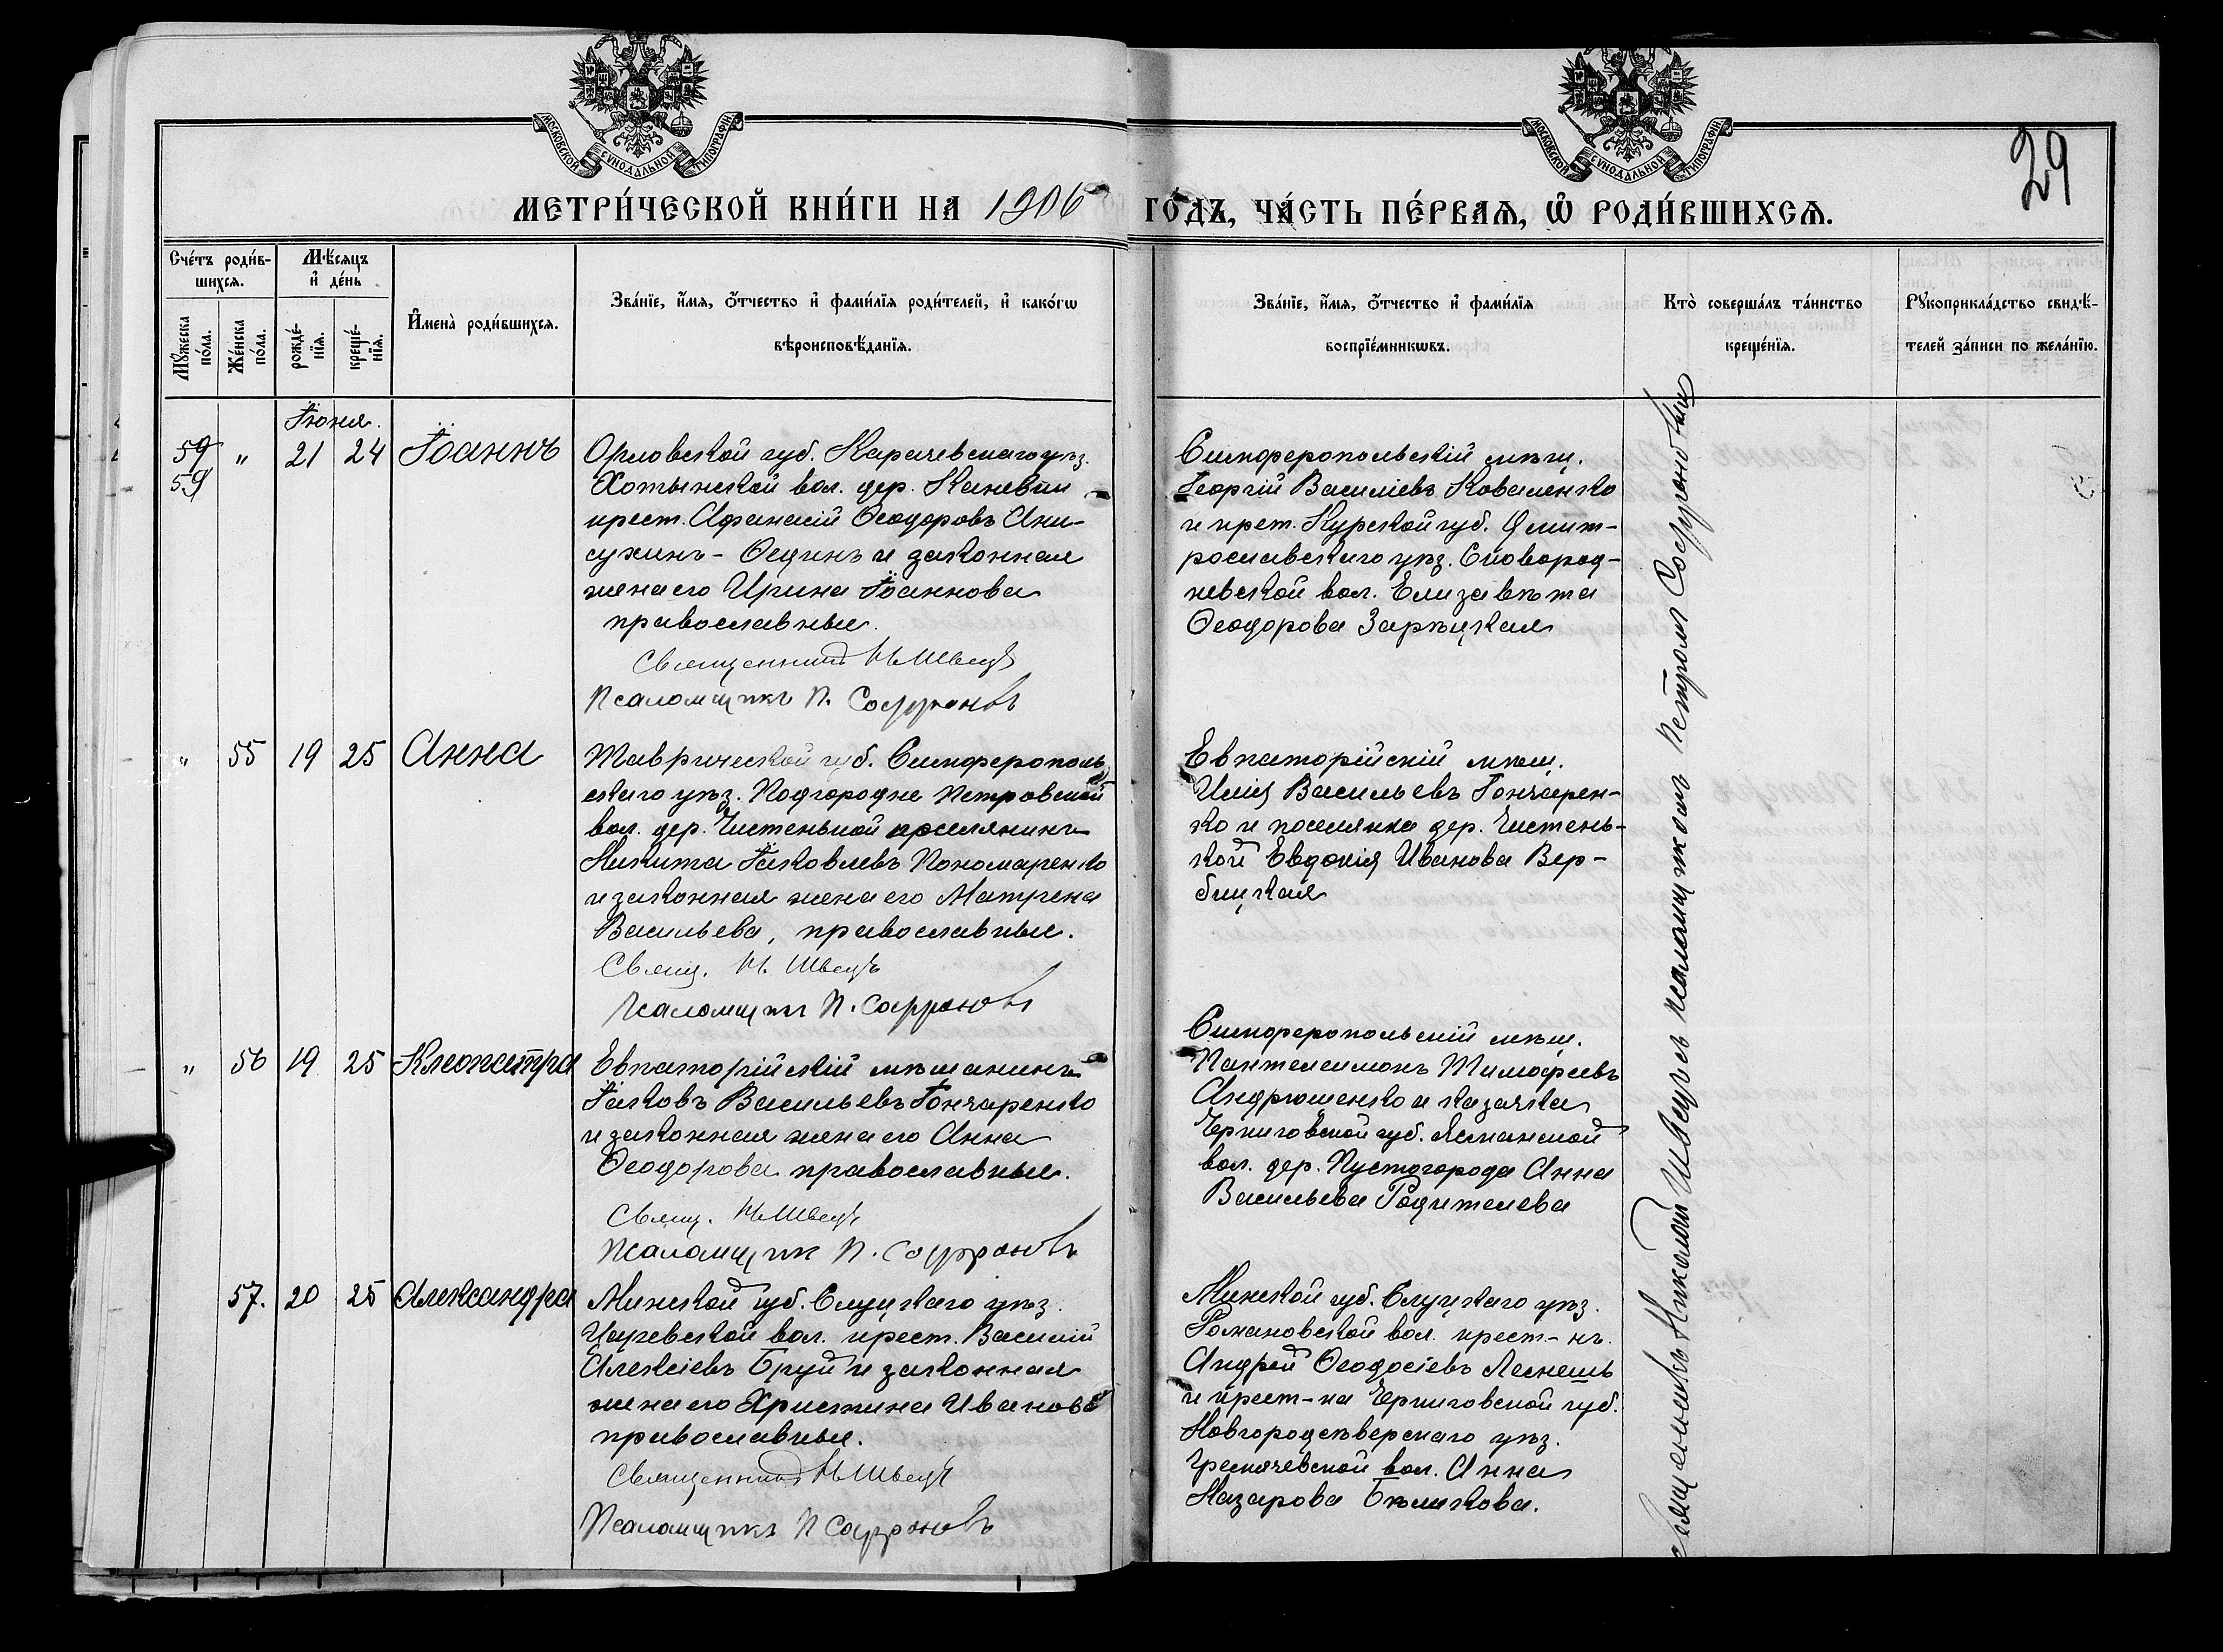 МОСКОВСКОЙ СѴНОДАЛЬНОЙ ТИПОГРАФІИ
МОСКОВСКОЙ СѴНОДАЛЬНОЙ ТИПОГРАФІИ
29
МЕТРИ́ЧЕСКОЙ КНИ́ГИ НА 1906 ГО́ДЪ, ЧА́СТЬ ПЕ́РВАѦ, Ѡ҆ РОДИ́ВШИХСѦ.
Сче́тъ роди́в-
шихсѧ.
Мꙋ́жеска по́ла.
Же́нска по́ла.
Мѣ́сѧцъ
и҆ де́нь
рожде́-
нїѧ.
креще́-
нїѧ.
И҆мена̀ роди́вшихсѧ.
Зва́нїе, и҆́мѧ, ѻ҆́тчество и҆ фами́лїѧ роди́телей, и҆ како́гѡ
вѣроисповѣ́данїѧ.
Зва́нїе, и҆́мѧ, ѻ҆́тчество и҆ фами́лїѧ
воспрїе́мникѡвъ.
Кто̀ соверша́лъ та́инство
креще́нїѧ.
Рꙋкоприкла́дство свидѣ́-
телей за́писи по жела́нїю.
Іюня.
59 " 21 24 Іоаннъ
59
Орловской губ. Карачевскаго уѣз.
Хотынской вол. дер.
крест. Афанасій Ѳеодоровъ Ани-
сухинъ - Ѳединъ и законная
жена его Ирина Іоаннова
православные.
Священникъ Н. Швецъ
Псаломщикъ П. Софроновъ
Симферопольскій мѣщ.
Георгій Василіевъ Коваленко
и крест. Курской губ. Дмит-
рославскаго уѣз. Сковород-
невской вол. Елизавета
Ѳеодорова Зарѣцкая
" 55 19 25 Анна
Таврической губ. Симферополь
скаго уѣз. Подгородне Петровской
вол. дер. Чистенькой поселянинъ
Никита Іаковлевъ Пономаренко
и законная жена его Матрена
Васильева, православные.
Свящ. Н. Швецъ
Псаломщикъ П. Софроновъ
Евпаторійскій мѣщ.
Илія Васильевъ Гончарен-
ко и поселянка дер. Чистень-
кой Евдокія Иванова Вер-
бицкая
" 56 19 25 Клеопатра
Евпаторійскій мѣщанинъ
Іаковъ Васильевъ Гончаренко
и законная жена его Анна
Ѳеодорова православные.
Свящ. Н. Швецъ
Псаломщикъ П. Софроновъ
Симферопольскій мѣщ.
Пантелеимонъ Тимофеевъ
Андрющенко и казачка
Черниговской губ. Ясманской
вол. дер. Пустогорода Анна
Васильева Родителева
57. 20 25 Александра
Минской губ. Слуцкаго уѣз.
вол. крест. Василій
Алексіевъ Бруй и законная
жена его Христина Иванова
православные.
Священникъ Н. Швецъ
Псаломщикъ П Софроновъ
Минской губ. Слуцкаго уѣз.
Романовской вол. крест-нъ.
Андрей Ѳеодосіевъ
и крест-ка Черниговской губ.
Новгородсѣверскаго уѣз.
вол. Анна
Назарова Бѣликова.
Священникъ Николай Швецъ съ псаломщикомъ Петромъ Софроновымъ